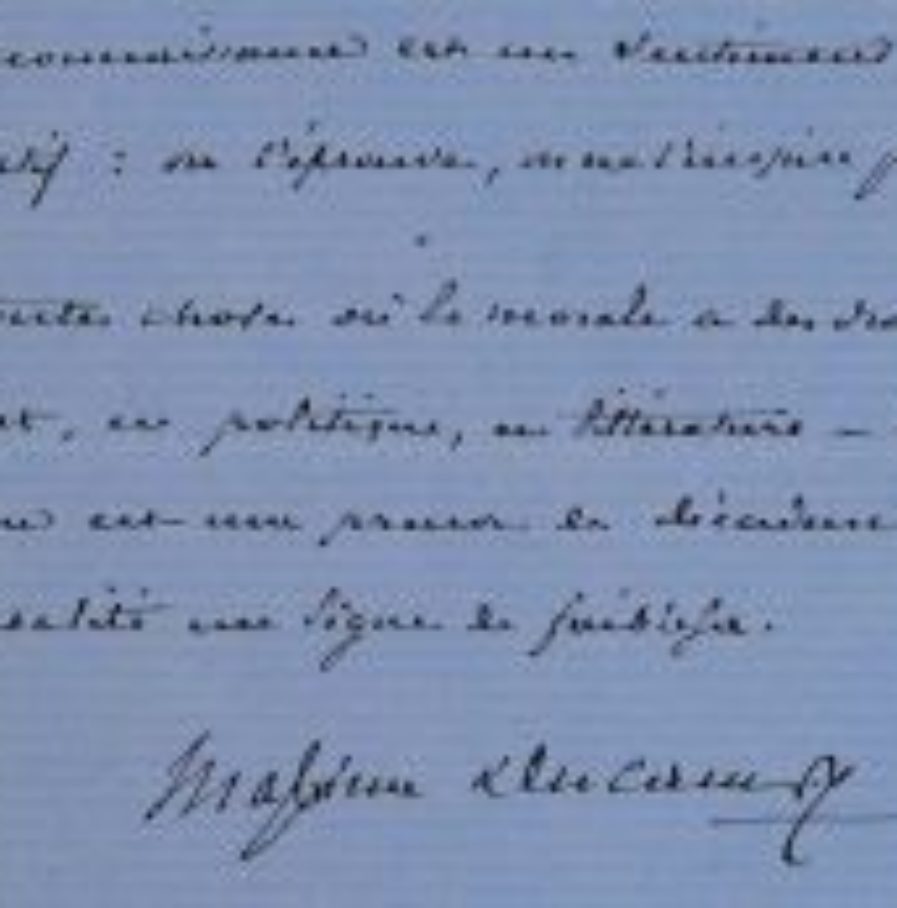 connaissance est un sentiment
tif : on l'éprouve, on ne l'inspire p
outes choses où la morale a des dro
et, en politique, en littérature —
est une preuve de décadence
une signe de faiblesse.
Maxime DuCamp